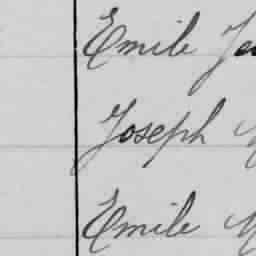 Emile
Joseph
Emile